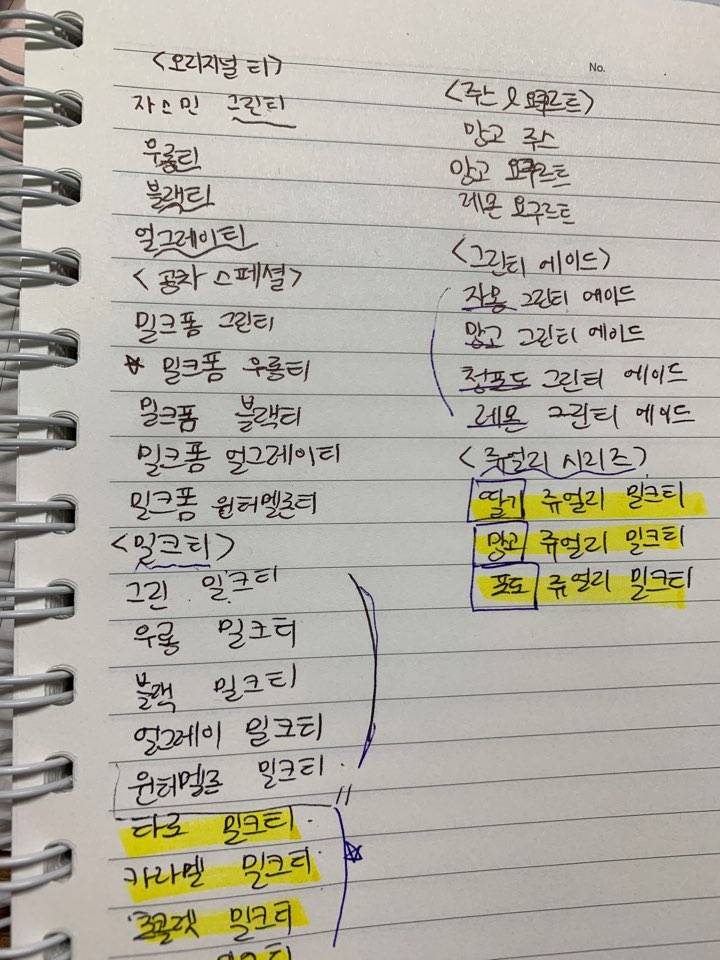 <오리지널 티>
자스민 그린티
우롱티
블랙티
얼그레이티
<공차 스페셜>
밀크폼 그린티
☆ 밀크폼 우롱티
밀크폼 블랙티
밀크폼 얼그레이티
밀크폼 윈터멜론티
<밀크티>
그린 밀크티
우롱 밀크티
블랙 밀크티
얼그레이 밀크티
윈터멜론 밀크티
타로 밀크티
카라멜 밀크티
초콜렛 밀크티
밀크티
No.
<주스 & 요구르트>
망고 주스
망고 요구르트
레몬 요구르트
<그린티 에이드>
자몽 그린티 에이드
망고 그린티 에이드
청포도 그린티 에이드
레몬 그린티 에이드
<쥬얼리 시리즈>
딸기 쥬얼리 밀크티
망고 쥬얼리 밀크티
포도 쥬얼리 밀크티